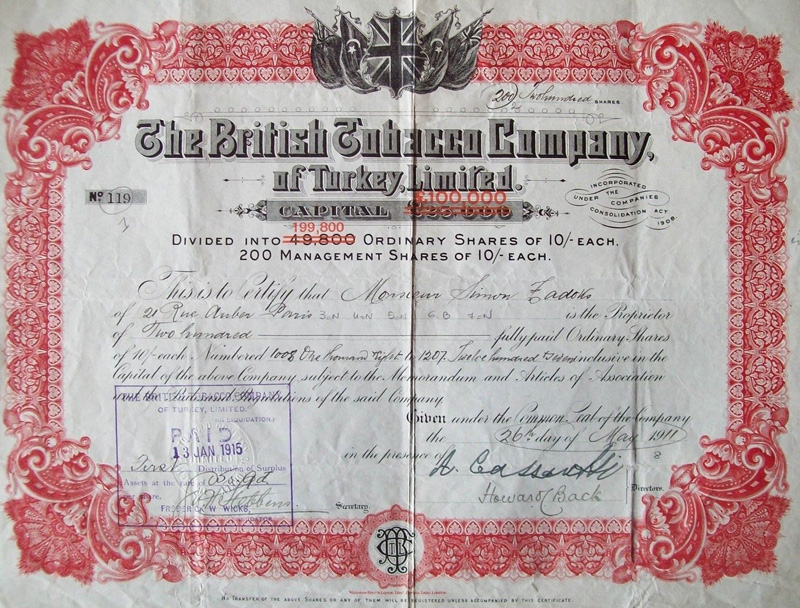 200 Two hundred SHARES
The British Tobacco Company,
of Turkey, Limited.
No 119
INCORPORATED
UNDER THE COMPANIES
CONSOLIDATION ACT
1908.
£100,000
CAPITAL £25,000
199,800
DIVIDED INTO 49,800 ORDINARY SHARES OF 10/- EACH.
200 MANAGEMENT SHARES OF 10/- EACH.
This is to Certify that Monsieur Simon Zadoks
of 20 Rue Auber Paris is the Proprietor
of Two hundred fully paid Ordinary Shares
of 10/- each Numbered 1008 One thousand eight to 1207 Twelve hundred & seven inclusive in the
Capital of the above Company, subject to the Memorandum and Articles of Association
and the Rules and Regulations of the said Company.
Given under the Common Seal of the Company
the 26th day of May 1911
in the presence of
Howard C Back
Directors.
Secretary.
THE BRITISH TOBACCO COMPANY
OF TURKEY, LIMITED.
(IN LIQUIDATION)
PAID
13 JAN 1915
First Distribution of Surplus
Assets at the rate of
per share.
FREDERICK W WICKS,
No TRANSFER OF THE ABOVE SHARES OR ANY OF THEM WILL BE REGISTERED UNLESS ACCOMPANIED BY THIS CERTIFICATE.